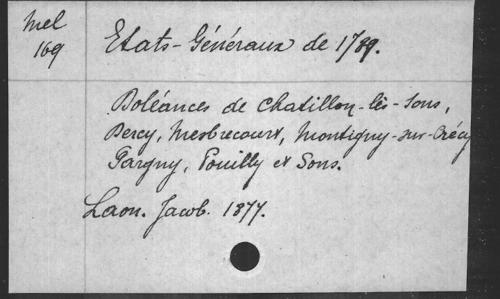 Mel
169
Etats-Généraux de 1789.
Doléances de Chatillon-lès-Sons,
Dercy, Mesbrecourt, Montigny-sur-Crécy
Pargny, Pouilly et Sons.
Laon. Jacob. 1877.